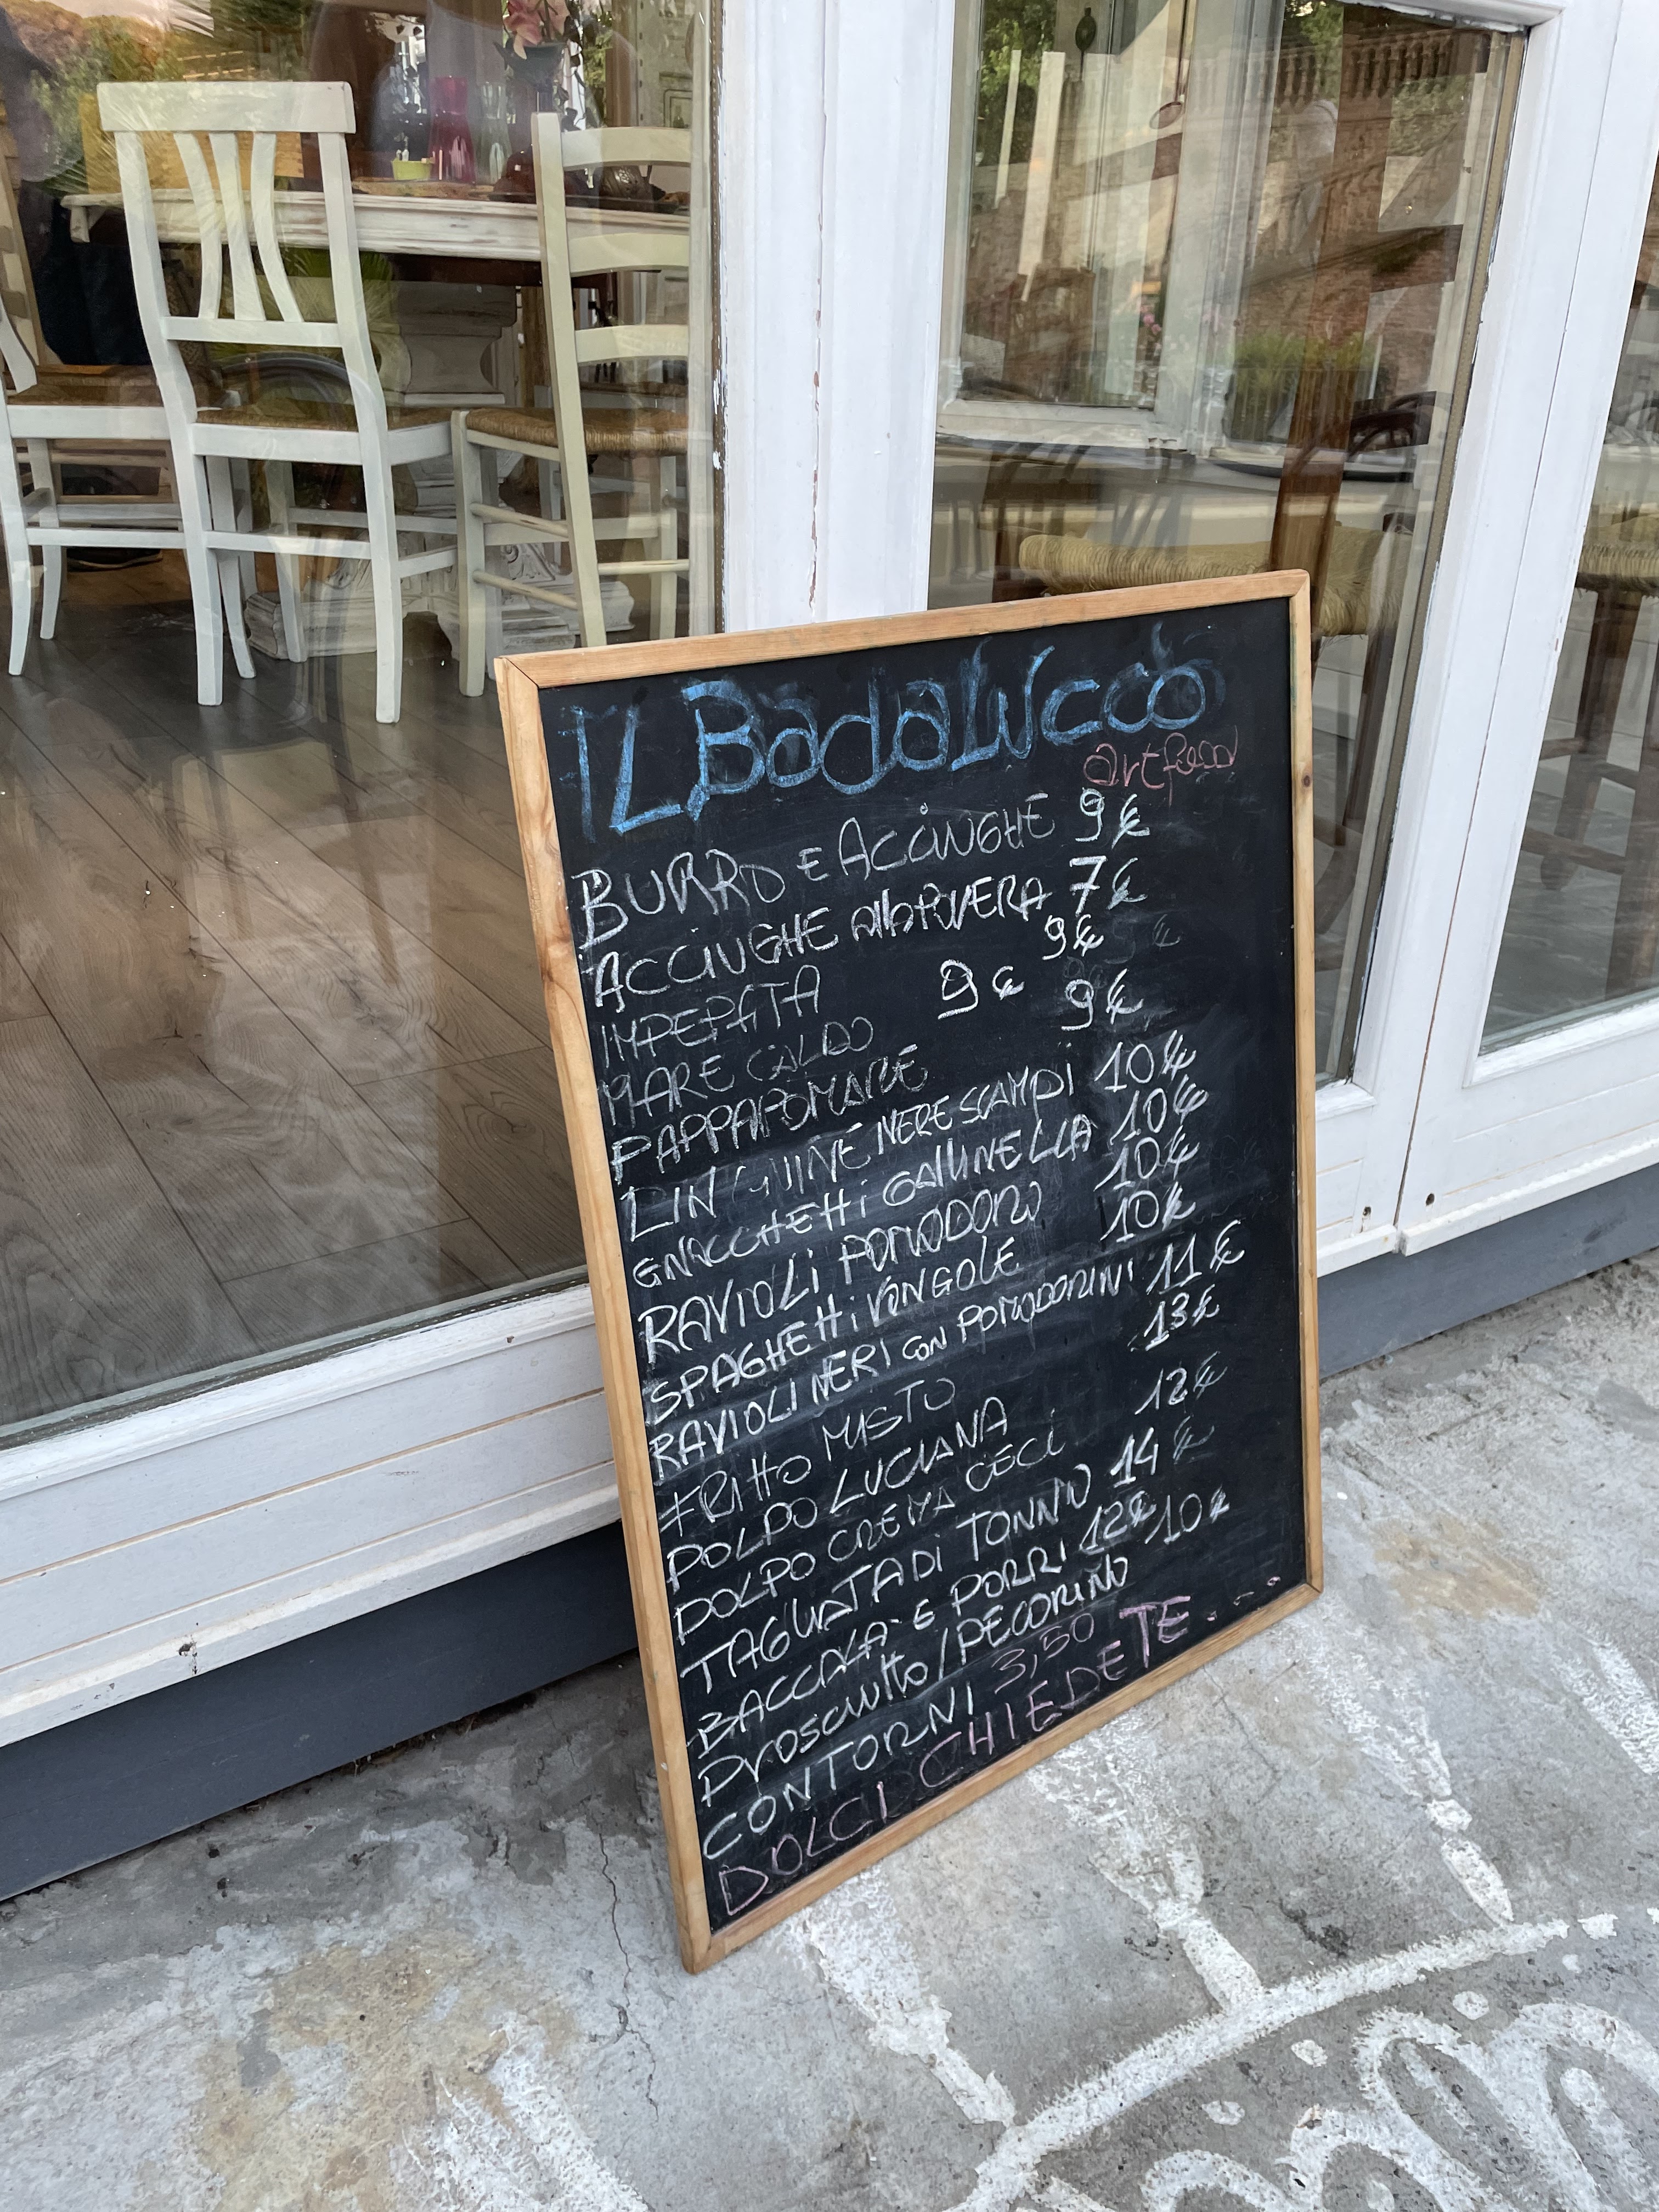 IL BadaLucco
artfood
BURRO E ACCIUGHE 9€
ACCIUGHE allaPOVERA 7€
IMPEPATA 9€
MARE CALDO 9€ 9€
PAPPAPOMARE
LINGUINE NERE SCAMPI 10€
GNOCCHETTI GALLINELLA 10€
RAVIOLI POMODORO 10€
SPAGHETTI VONGOLE 10€
RAVIOLI NERI CON POMODORINI 11€
FRITTO MISTO 13€
POLPO LUCIANA
POLPO CREMA CECI 12€
TAGLIATA DI TONNO 14€
BACCALA' E PORRI 12€
Prosciutto/PECORINO 10€
CONTORNI 3,50
DOLCI CHIEDETE...